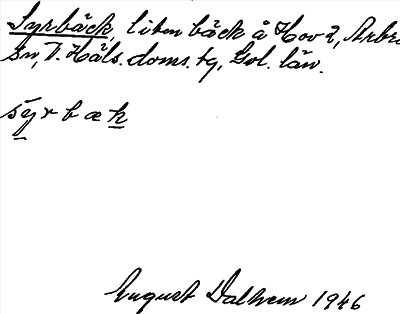 Syrbäck, liten bäck å Hov 2, Arbrå
sn, V. Häls. doms. tg, Gvl. län.
sȳrbæk
August Dalhem 1946